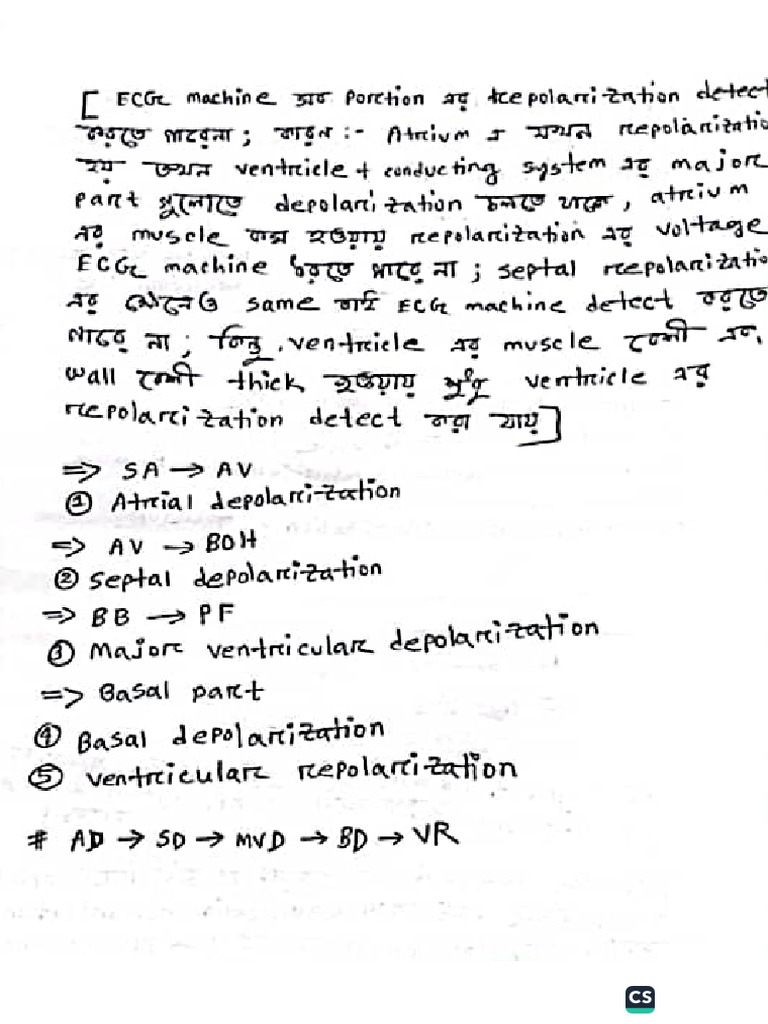 [ ECG machine সব Portion এর repolarization detect
করতে পারেনা ; কারন :- Atrium এ যখন repolarizatio
হয় তখন ventricle + conducting system এর major
part গুলোতে depolarization চলতে থাকে, atrium
এর muscle কম হওয়ায় repolarization এর voltage
ECG machine ধরতে পারে না ; septal repolarizatio
এর ক্ষেত্রেও same তাই ECG machine detect করতে
পারে না ; কিন্তু, ventricle এর muscle বেশী এবং
wall বেশী thick হওয়ায় শুধু ventricle এর
repolarization detect করা যায়]
=> SA → AV
① Atrial depolarization
=> AV → BOH
② Septal depolarization
=> BB → PF
③ Major ventricular depolarization
=> Basal part
④ Basal depolarization
⑤ ventricular repolarization
# AD → SD → MVD → BD → VR
CS